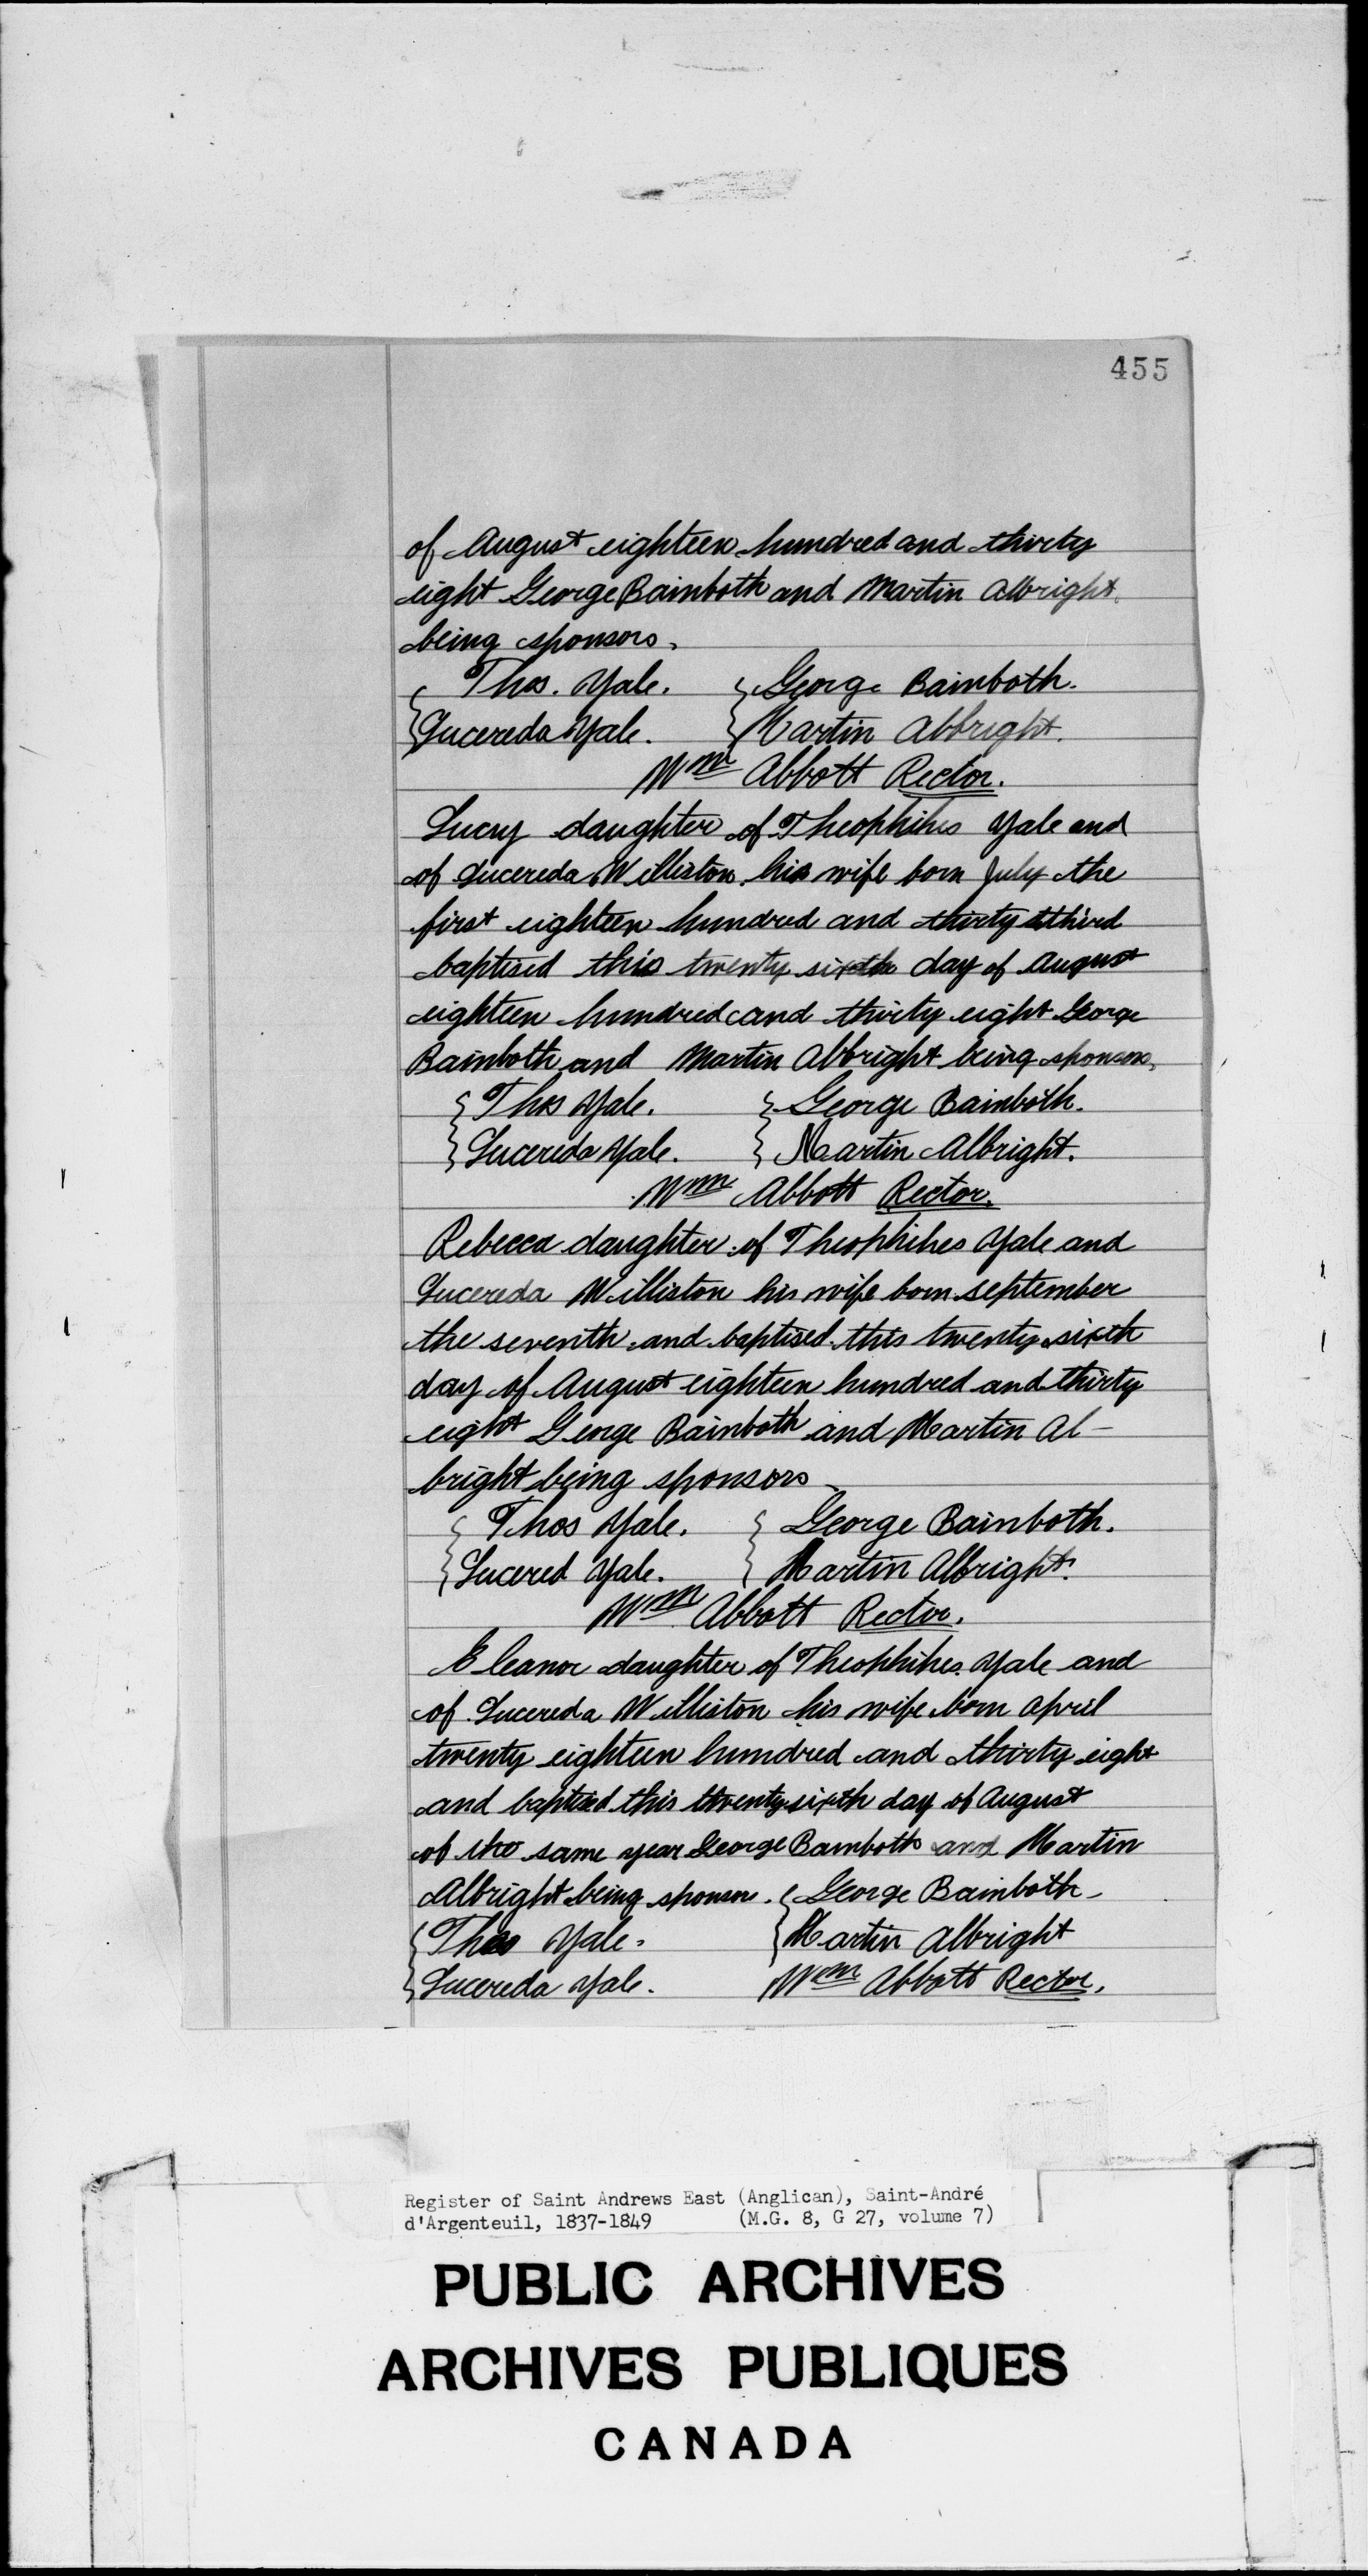 455
of August eighteen hundred and thirty
eight George Bainboth and Martin Albright
being sponsors.
{ Thos. Yale. { George Bainboth.
{ Lucereda Yale. { Martin Albright.
Wm Abbott Rector.
Lucy daughter of Theophihes Yale and
of Lucereda Williston his wife born July the
first eighteen hundred and thirty third
baptised this twenty sixth day of August
eighteen hundred and thirty eight George
Bainboth and Martin Albright being sponsors,
{ Thos Yale. { George Bainboth.
{ Lucereda Yale. { Martin Albright.
Wm Abbott Rector.
Rebecca daughter of Theophihes Yale and
Lucereda Williston his wife born september
the seventh and baptised this twenty sixth
day of August eighteen hundred and thirty
eight George Bainboth and Martin Al-
bright being sponsors
{ Thos Yale. { George Bainboth.
{ Lucered Yale. { Martin Albright.
Wm Abbott Rector.
Eleanor daughter of Theophihes Yale and
of Lucereda Williston his wife born April
twenty eighteen hundred and thirty eight
and baptised this twenty sixth day of August
of the same year George Bainboth and Martin
Albright being sponsors. { George Bainboth
{ Thos Yale. { Martin Albright
{ Lucereda Yale. Wm Abbott Rector.
Register of Saint Andrews East (Anglican), Saint-André
d'Argenteuil, 1837-1849 (M.G. 8, G 27, volume 7)
PUBLIC ARCHIVES
ARCHIVES PUBLIQUES
CANADA